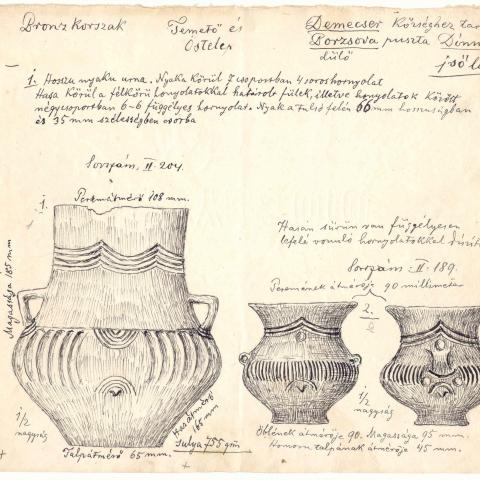 Bronzkorszak
Temető és
Őstelep
Demecser Községhez tar
Borzsova puszta
dülő
1. Hosszu nyaku urna. Nyaka Körül 7 csoportban 4 soros hornyolat
Hasa Körül a félkörü hornyolatokkal határolt fülek, illetve hornyolatok Között
négy csoportban 6-6 függélyes hornyolat. Nyak a tulsó felén 66 mm hosszuságban
és 35 mm szélességben csorba
Sorszám. II. 204.
1. Peremátmérő 108 mm.
Magassága 185 mm
Hasátmérő
165 mm
Sulya 755 gm
1/2
nagyság
Talpátmérő 65 mm.
Hasán sürün van függélyesen
lefelé vonuló hornyolatokkal
Sorszám - II - 189.
Peremének átmérője 90 milliméter
2.
1/2
nagyság
Öblének átmérője 90. Magassága 95 mm.
Homoru talpának átmérője 45 mm.